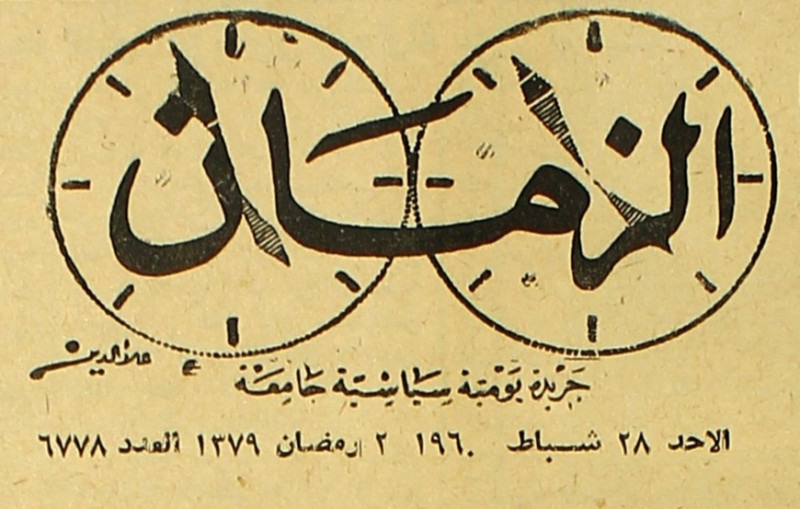 الزمان
علاءالدين
جَريْدة يَوْميّة سِيَاسْيّة جَامِعَة
الاحد ٢٨ شباط ١٩٦٠ ٢ رمضان ١٣٧٩ العدد ٦٧٧٨